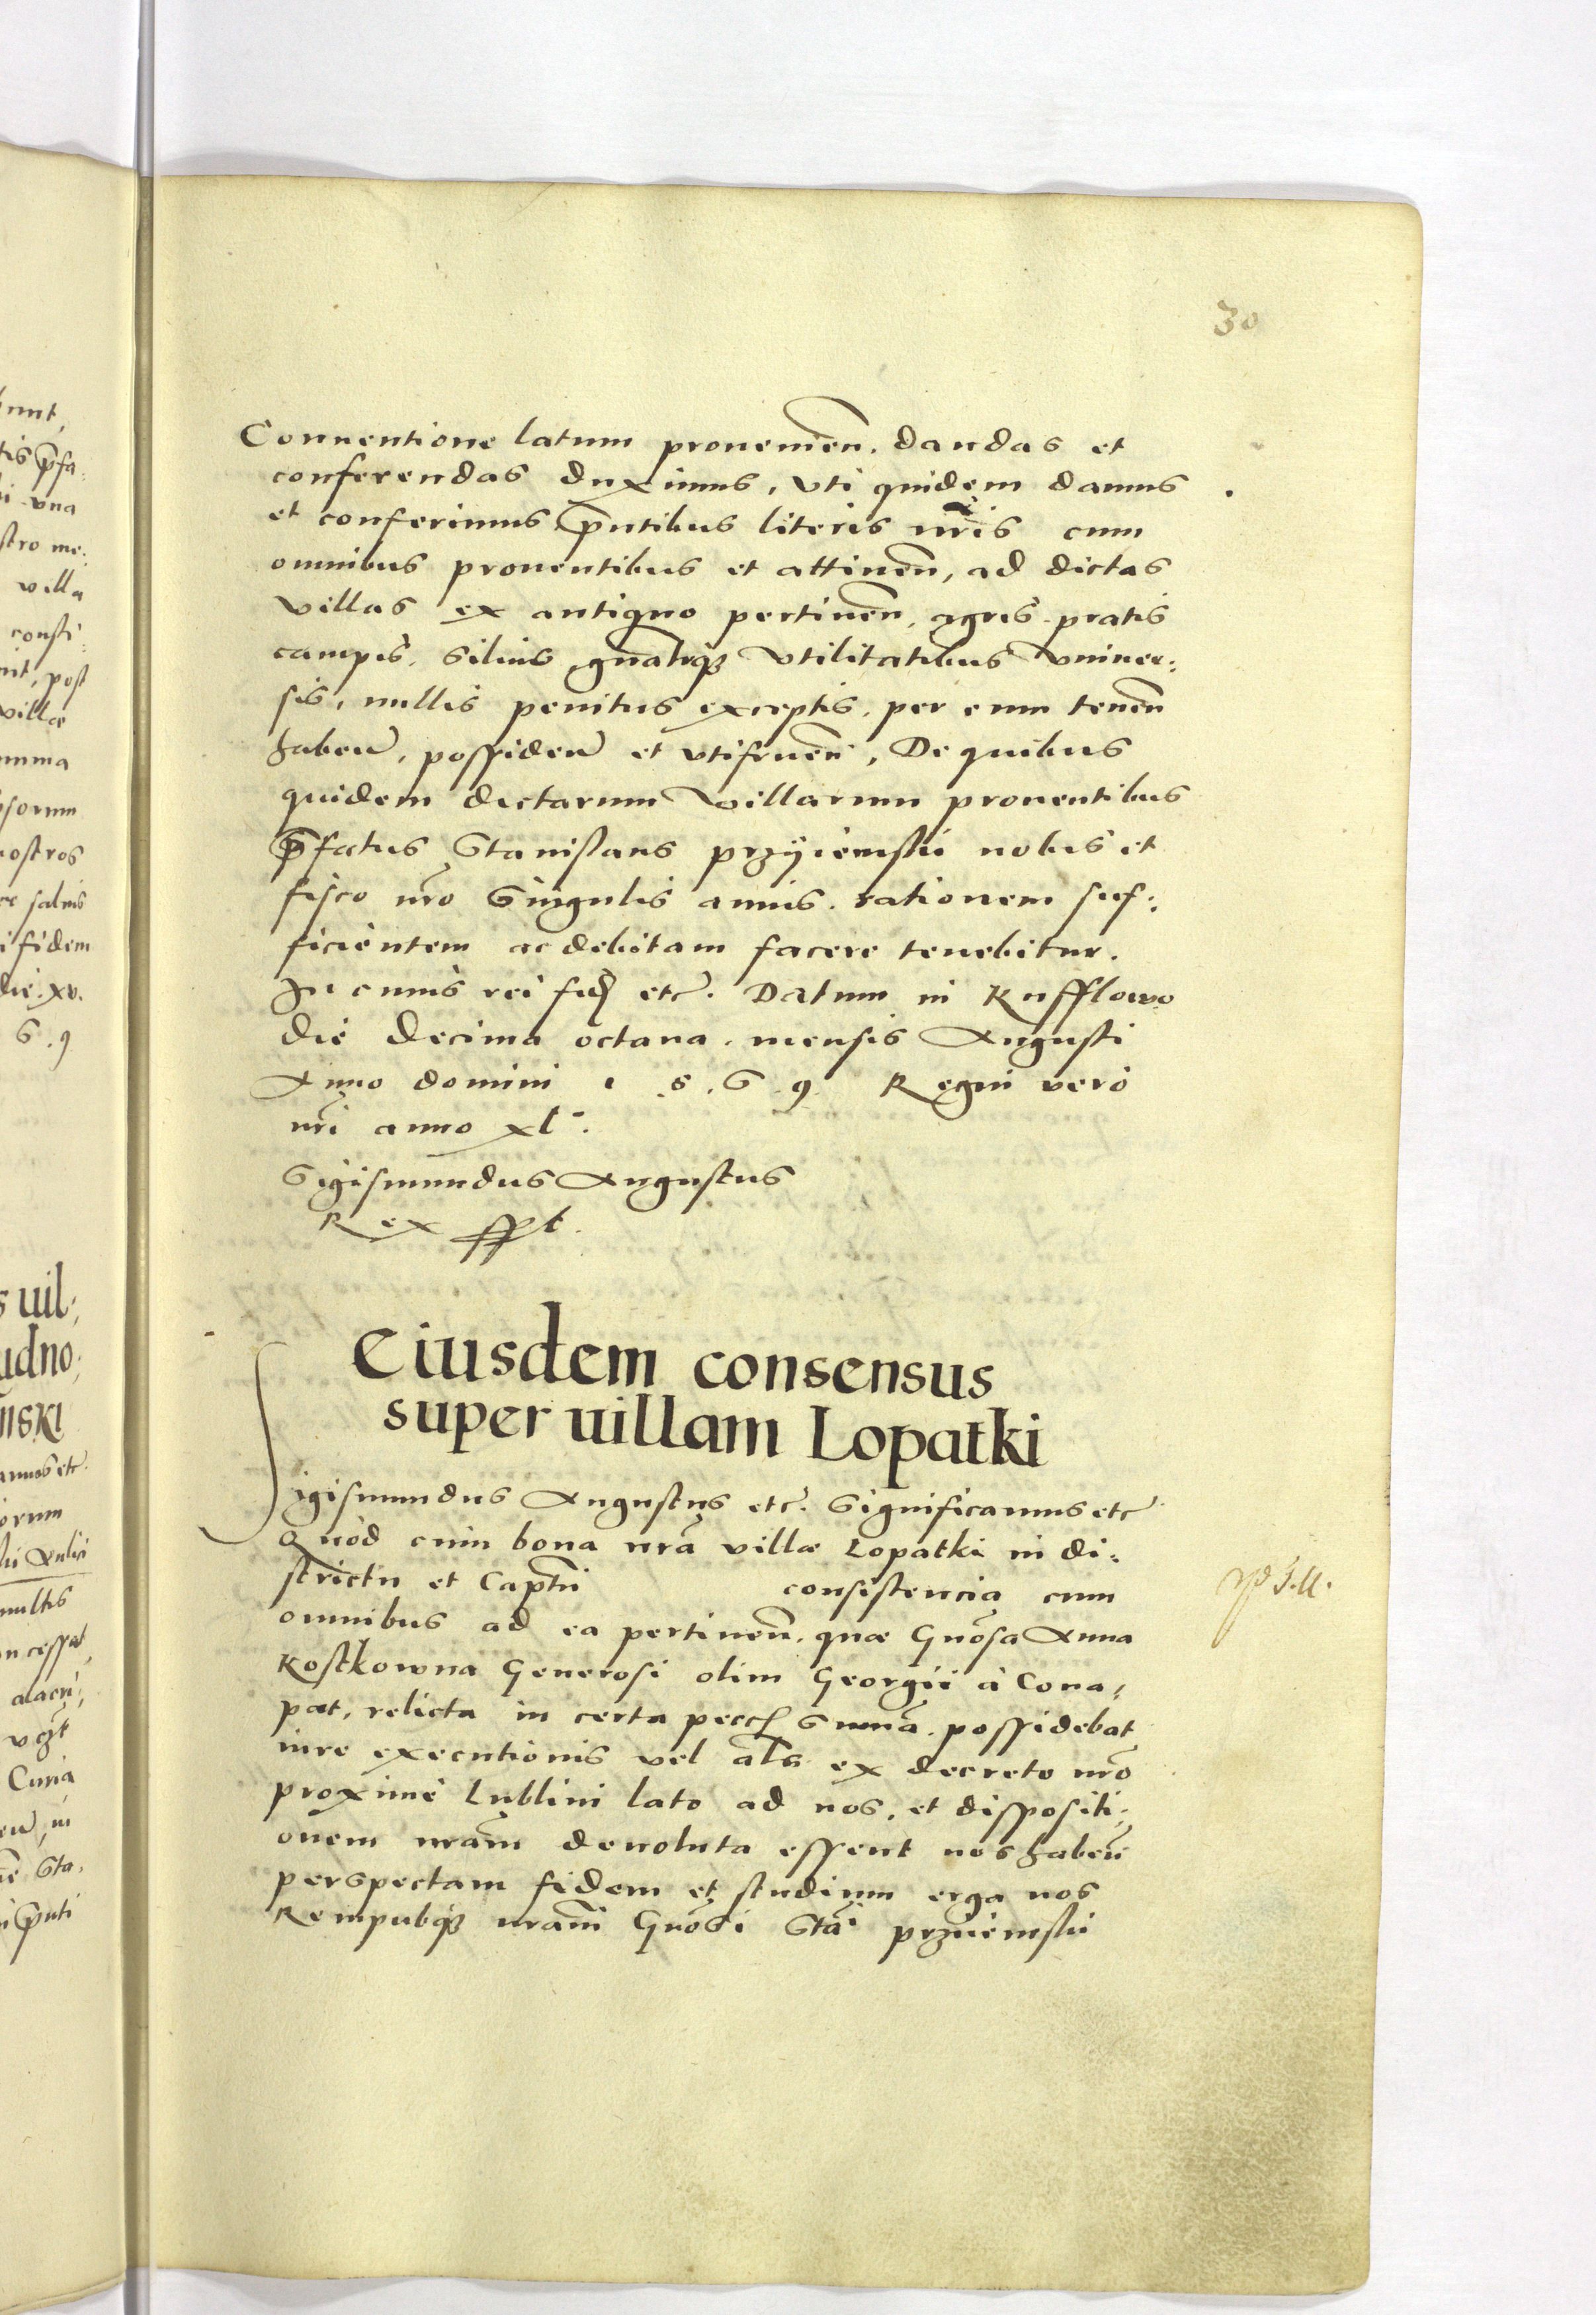 30
Conuentione latum prouenien̄. dandas et
conferendas duximus, vti quidem damus
et conferimus p̄ntibus literis nr̄is cum
omnibus prouentibus et attinen̄, ad dictas
villas ex antiquo pertinen̄, agris pratis
campis, siluis gn̄alitq3 vtilitatibus vniuer:
sis, nullis penitus exceptis, per eum tenen̄
haben̄, possiden̄ et vtifruen̄, De quibus
quidem dictarum villarum prouentibus
p̄fatus Stanislaus przÿiemskii nobis et
fisco nr̄o singulis annis rationem suf:
ficientem ac debitam facere tenebitur.
In cuius rei fid etc. Datum in Kufflowo
die decima octaua mensis Augusti
Anno domini 1 5 . 6 9 Regni vero
nr̄i anno xl.
Sigismundus Augustus
Rex sspt.
Eiusdem consensus
super uillam Lopatki
Sigismundus Augustus etc. Significamus etc
Quod cum bona nr̄a villæ Lopatki in di:
strictu et Captn̄i consistencia cum
omnibus ad ea pertinen̄. quæ Gnōsa Anna
Kostkowna Generosi olim Georgii à Cona:
pat, relicta in certa pecc sum̄a possidebat
iure executionis vel al̄s ex decreto nr̄o
proximè Lublini lato ad nos, et dispositi:
onem nr̄am deuoluta essent nos haben̄
perspectam fidem et studium erga nos
Rempubq3 nr̄am Gnōsi Stai przyiemskii